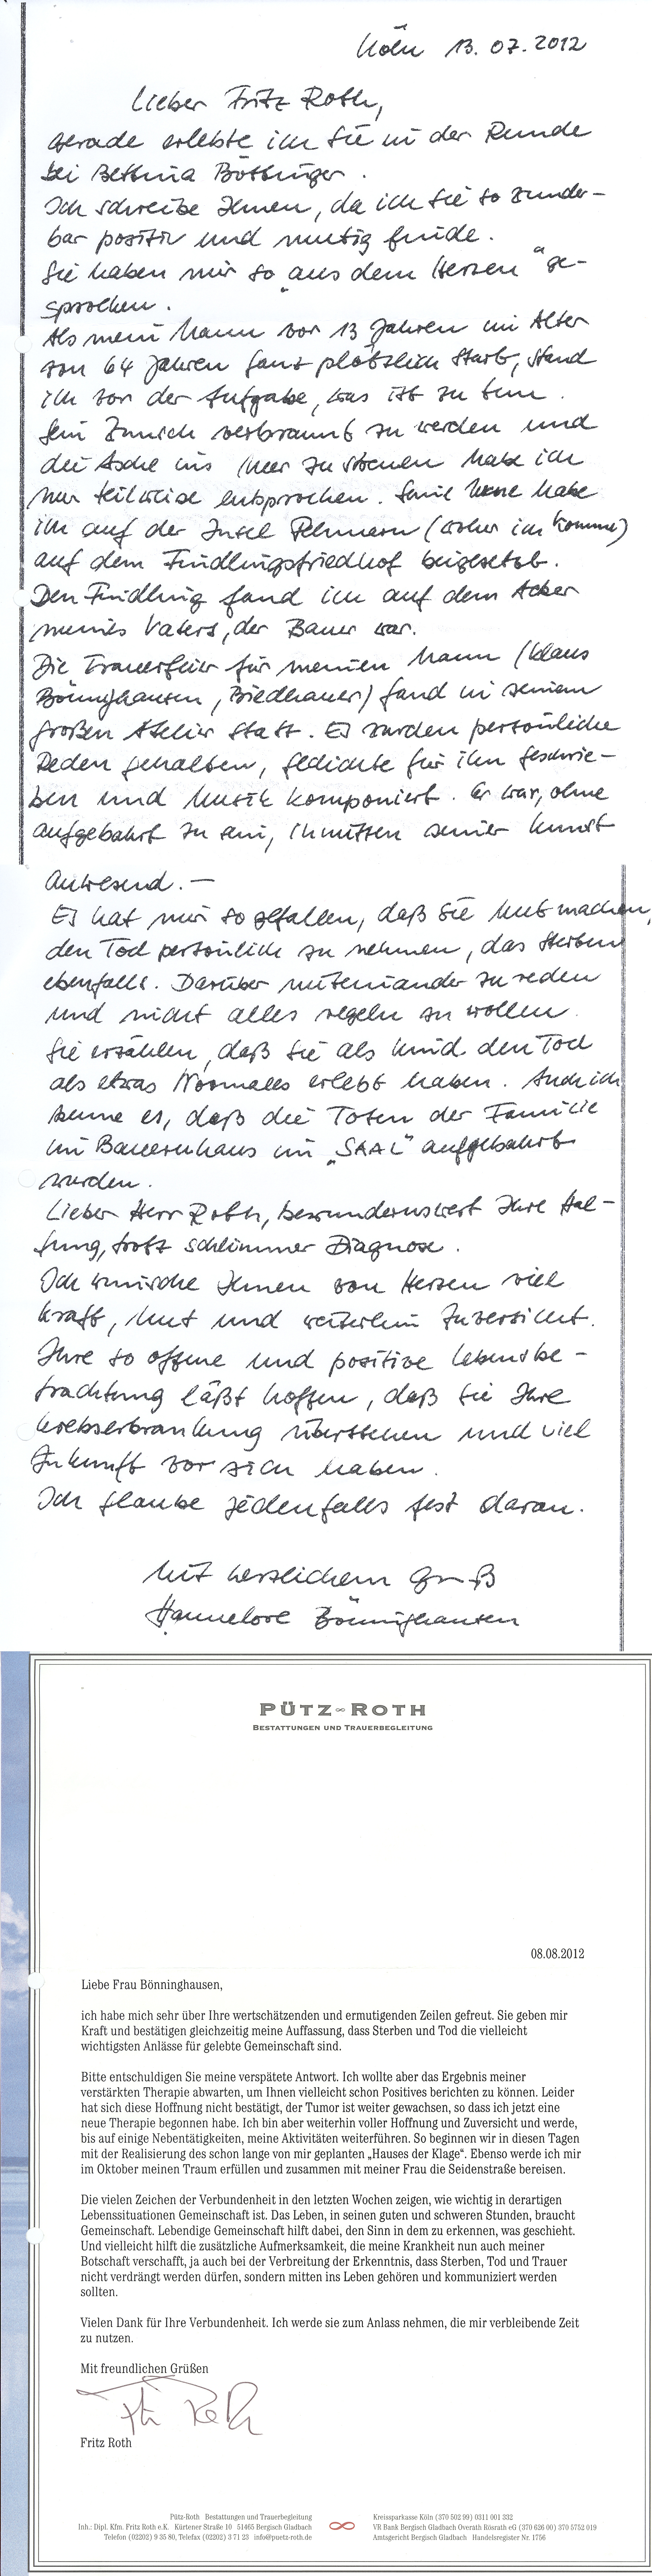 Köln 13. 07. 2012
Lieber Fritz Roth,
gerade erlebte ich Sie in der Runde
bei Bettina Böttinger.
Ich schreibe Ihnen, da ich Sie so wunder-
bar positiv und mutig finde.
Sie haben mir so "aus dem Herzen" ge-
sprochen.
Als mein Mann vor 13 Jahren im Alter
von 64 Jahren ganz plötzlich starb, stand
ich vor der Aufgabe, was ist zu tun.
Sein Wunsch verbrannt zu werden und
die Asche ins Meer zu streuen habe ich
nur teilweise entsprochen. Seine Urne habe
ich auf der Insel Fehmarn (woher ich komme)
auf dem Findlingsfriedhof beigesetzt.
Den Findling fand ich auf dem Acker
meines Vaters, der Bauer war.
Die Trauerfeier für meinen Mann (Klaus
Bönnighausen, Bildhauer) fand in seinem
großen Atelier statt. Es wurden persönliche
Reden gehalten, Gedichte für ihn geschrie-
ben und Musik komponiert. Er war, ohne
aufgebahrt zu sein, inmitten seiner Kunst
anwesend. —
Es hat mir so gefallen, daß Sie Mut machen,
den Tod persönlich zu nehmen, das Sterben
ebenfalls. Darüber miteinander zu reden
und nicht alles regeln zu wollen.
Sie erzählen, daß Sie als Kind den Tod
als etwas Normales erlebt haben. Auch ich
kenne es, daß die Toten der Familie
im Bauernhaus im „SAAL" aufgebahrt
wurden.
Lieber Herr Roth, bewundernswert Ihre Hal-
tung, trotz schlimmer Diagnose.
Ich wünsche Ihnen von Herzen viel
Kraft, Mut und weiterhin Zuversicht.
Ihre so offene und positive Lebensbe-
trachtung läßt hoffen, daß Sie Ihre
Krebserkrankung überstehen und viel
Zukunft vor sich haben.
Ich glaube jedenfalls fest daran.
Mit herzlichem Gruß
Hannelore Bönnighausen
PÜTZ∞ROTH
BESTATTUNGEN UND TRAUERBEGLEITUNG
08.08.2012
Liebe Frau Bönninghausen,
ich habe mich sehr über Ihre wertschätzenden und ermutigenden Zeilen gefreut. Sie geben mir
Kraft und bestätigen gleichzeitig meine Auffassung, dass Sterben und Tod die vielleicht
wichtigsten Anlässe für gelebte Gemeinschaft sind.
Bitte entschuldigen Sie meine verspätete Antwort. Ich wollte aber das Ergebnis meiner
verstärkten Therapie abwarten, um Ihnen vielleicht schon Positives berichten zu können. Leider
hat sich diese Hoffnung nicht bestätigt, der Tumor ist weiter gewachsen, so dass ich jetzt eine
neue Therapie begonnen habe. Ich bin aber weiterhin voller Hoffnung und Zuversicht und werde,
bis auf einige Nebentätigkeiten, meine Aktivitäten weiterführen. So beginnen wir in diesen Tagen
mit der Realisierung des schon lange von mir geplanten „Hauses der Klage“. Ebenso werde ich mir
im Oktober meinen Traum erfüllen und zusammen mit meiner Frau die Seidenstraße bereisen.
Die vielen Zeichen der Verbundenheit in den letzten Wochen zeigen, wie wichtig in derartigen
Lebenssituationen Gemeinschaft ist. Das Leben, in seinen guten und schweren Stunden, braucht
Gemeinschaft. Lebendige Gemeinschaft hilft dabei, den Sinn in dem zu erkennen, was geschieht.
Und vielleicht hilft die zusätzliche Aufmerksamkeit, die meine Krankheit nun auch meiner
Botschaft verschafft, ja auch bei der Verbreitung der Erkenntnis, dass Sterben, Tod und Trauer
nicht verdrängt werden dürfen, sondern mitten ins Leben gehören und kommuniziert werden
sollten.
Vielen Dank für Ihre Verbundenheit. Ich werde sie zum Anlass nehmen, die mir verbleibende Zeit
zu nutzen.
Mit freundlichen Grüßen
Fritz Roth
Fritz Roth
Pütz-Roth Bestattungen und Trauerbegleitung
Inh.: Dipl. Kfm. Fritz Roth e.K. Kürtener Straße 10 51465 Bergisch Gladbach
Telefon (02202) 9 35 80, Telefax (02202) 3 71 23 info@puetz-roth.de
Kreissparkasse Köln (370 502 99) 0311 001 332
VR Bank Bergisch Gladbach Overath Rösrath eG (370 626 00) 370 5752 019
Amtsgericht Bergisch Gladbach Handelsregister Nr. 1756